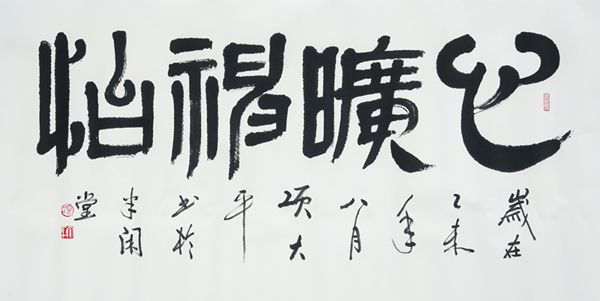 心曠神怡
歲在
乙未
年
八月
项大
平
书於
半闲
堂